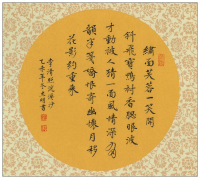 繡面芙蓉一笑開
斜飛寶鴨襯香腮眼波
才動被人猜一面風情深有
韻半箋嬌恨寄幽懷月移
花影約重來
李清照浣溪沙